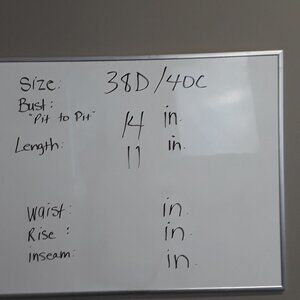 Size: 38D/40C
Bust: 14 in.
"Pit to Pit"
Length: 11 in.
Waist: in.
Rise: in.
inseam: in.